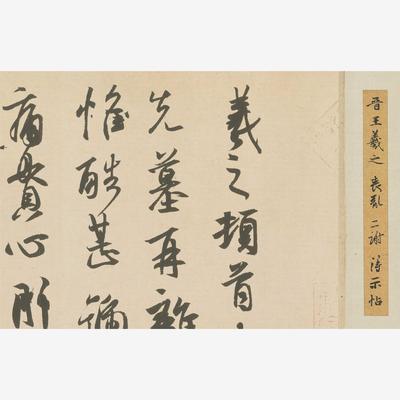 晋王羲之 喪乱 二謝 得示帖
羲之頓首
先墓再離
惟酷甚號
痛貫心肝